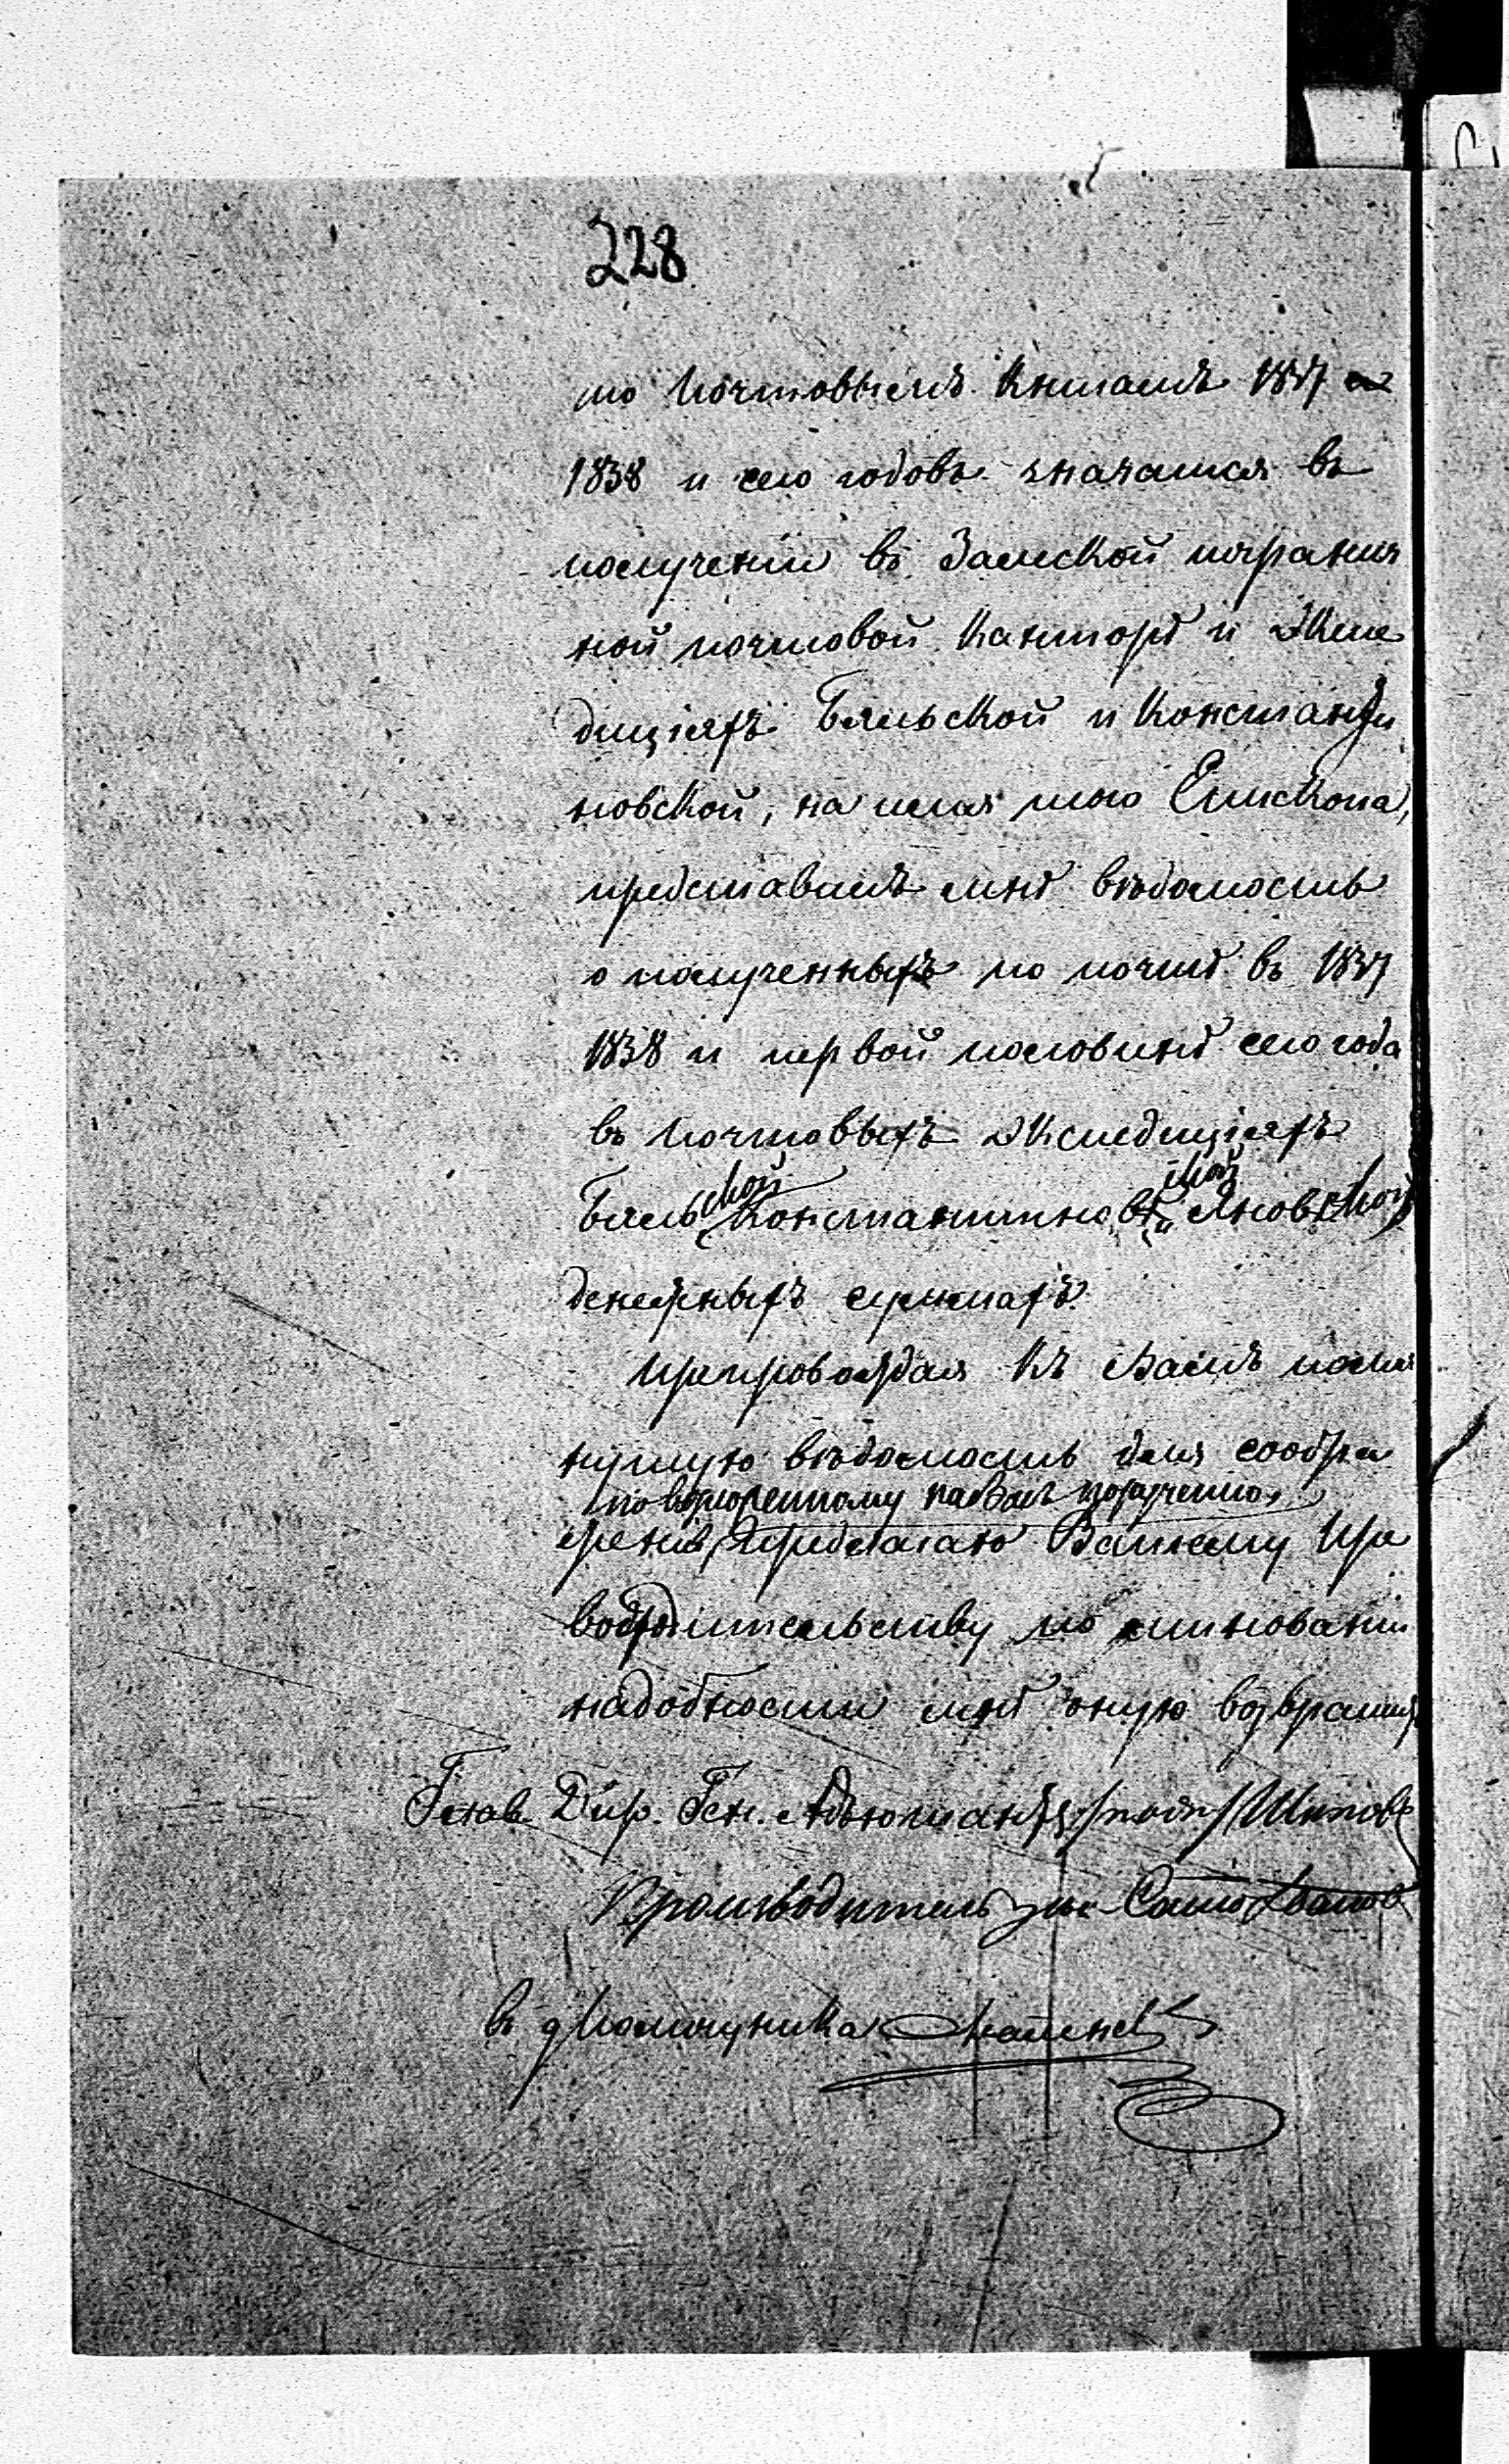 228
по почтовымъ книгамъ 1837
1838 и сего годовъ значатся въ
полученіи въ Замской погранич
ной почтовой Канторѣ и Экспе
диціяхъ Бяльской и Константи
новской, на имя того Епископа,
представилъ мнѣ вѣдомость
о полученныхъ по почтѣ въ 1837
1838 и первой половинѣ сего года
въ почтовыхъ Экспедиціяхъ
Бяльской Константиновской и Яновской
денежныхъ суммахъ.
Препровождая къ Вамъ помя
нутую вѣдомость для сообра
по возложенному на Васъ порученію,
женія, предлагаю Вашему Пре
восходительству по минованіи
надобности мнѣ оную возвратить
Глав. Дир. Ген. Адъютантъ /подп/ Шиповъ
Производитель
въ д Помощника